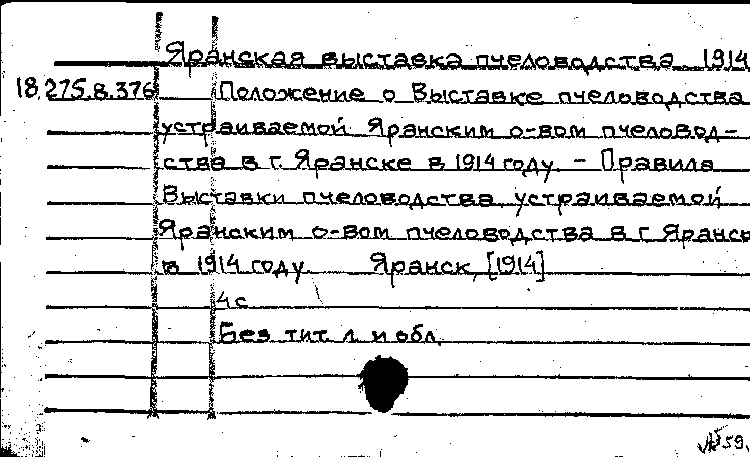 Яранская выставка пчеловодства 1914
18.275.8.376 Положение о Выставке пчеловодства
устраиваемой Яранским о-вом пчеловод-
ства в г. Яранске в 1914 году. – Правила
Выставки пчеловодства, устраиваемой
Яранским о-вом пчеловодства в г. Яранск
в 1914 году. Яранск, [1914]
4 с
Без тит. л. и обл.
59.